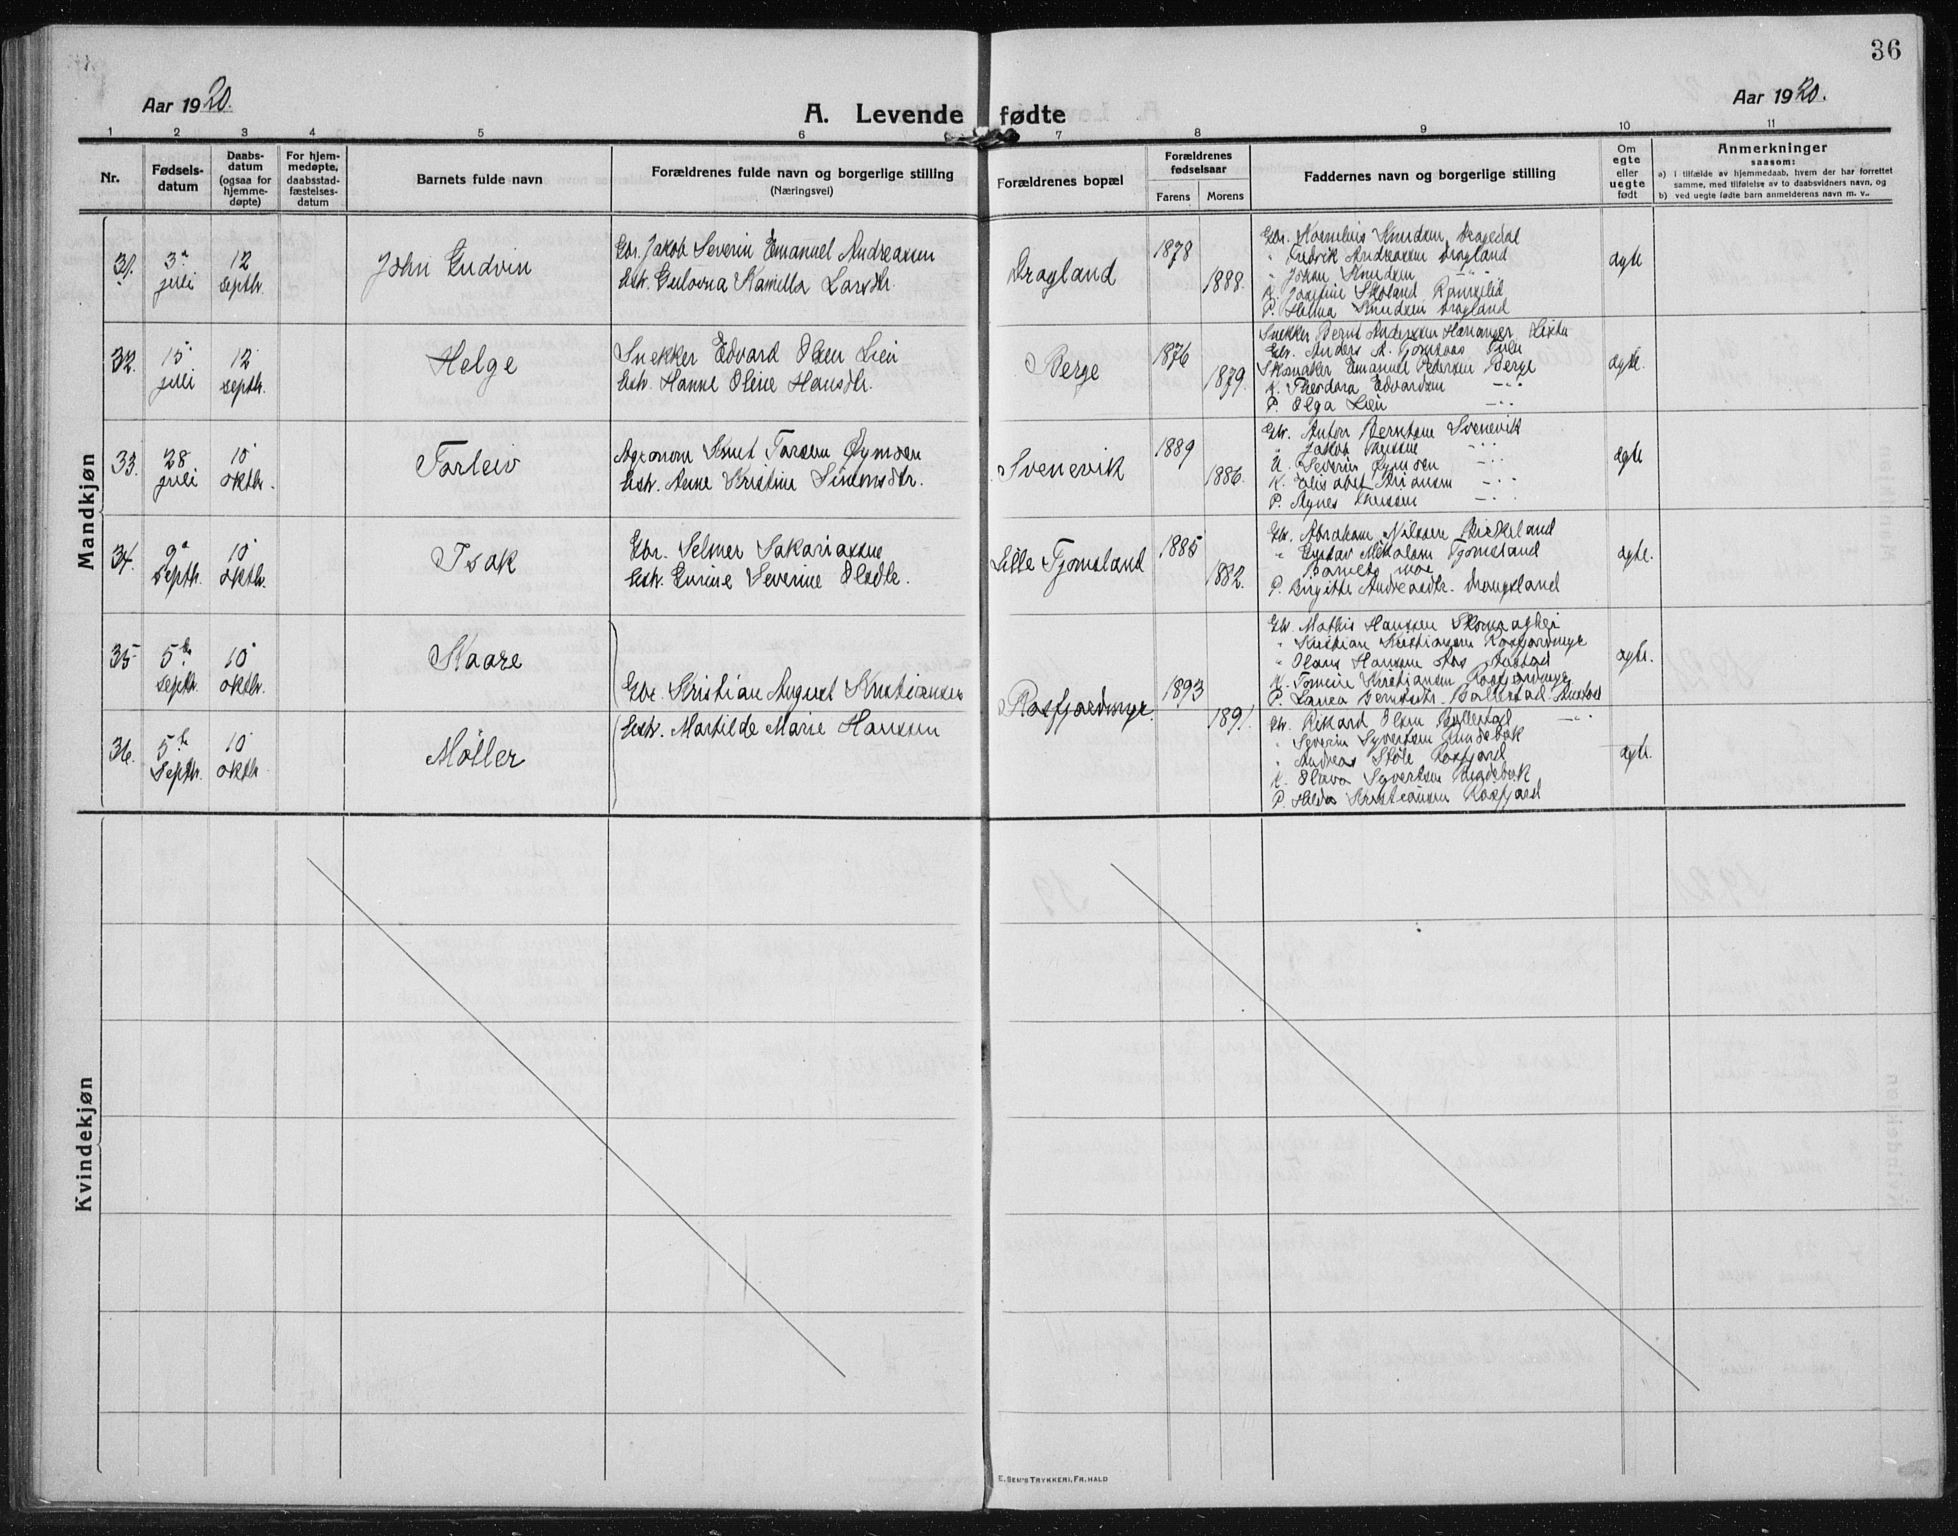 36
Aar 1920.
A. Levende fødte
Aar 1920.
1 2 3 4 5 6 7 8 9 10 11
Nr.
Fødsels-
datum
Daabs-
datum
(ogsaa for
hjemme-
døpte)
For hjem-
medøpte,
daabsstad-
fæstelses-
datum
Barnets fulde navn
Forældrenes fulde navn og borgerlige stilling
(Næringsvei)
Forældrenes bopæl
Forældrenes
fødselsaar
Farens Morens
Faddernes navn og borgerlige stilling
Om
egte
eller
uegte
født
Anmerkninger
saasom:
a) i tilfælde av hjemmedaab, hvem der har forrettet
samme, med tilføielse av to daabsvidners navn, og
b) ved uegte fødte barn anmelderens navn m. v..
Mandkjøn
31. 3 juli 12 septbr.
John Gudvin
Gbr. Jakob Severin Emanuel Andreassen
Hstr. Gulovia Kamilla Larsdtr.
Dragland
1878
1888.
Gbr. Kornelius Knudsen Dragedal
" Fredrik Andreassen Dragland
" Johan Knudsen -"-
K. Josefine Skoland
P. Helma Knudsen Dragland
ægte
32. 15 juli 12 septbr.
Helge
Snekker Edvard Olsen Lien
Hstr. Hanne Oline Hansdtr.
Berge
1876
1879.
Snekker Bernt Andersen Hananger Lista
Gbr. Anders A.
Skomaker Emanuel Pedersen Berge
K. Theodora Edvardsen -"-
P. Olga Lien -"-
ægte.
33. 28 juli 10 oktbr.
Torleiv
Agronom Knut Tarsen Øymoen
Hstr. Anne Kristine Simonsdtr.
Svenevik
1889
1886.
Gbr. Anton Berntsen Svenevik
" Jakob -"-
U. Severin Øymoen -"-
K. Elisabet -"-
P. Agnes -"-
ægte
34. 9 septbr. 10 oktbr.
Isak
Gbr. Selmer Sakariassen
Hstr. Gurine Severine Olsdtr.
Lille Tjomsland
1885
1882.
Gbr. Abraham Nilssen Birkeland
" Gustav Mikalsen Tjomsland
Barnets mor
P. Birgitte Andreasdtr. Drangsland
ægte.
35 5 septbr. 10 oktbr.
Kaare
Gbr. Kristian August Kristiansen
Hstr. Martilde Marie Hanssen
Rosfjordmyr.
1893
1891.
Gbr. Mathis Hanssen
" Kristian Kristiansen Rosfjordmyr
" Olaus Hanssen Aas Austad
K. Tomine Kristiansen Rosfjordmyr
P. Laura Berntsdtr. Ballestad Austad
ægte.
36. 5 septbr. 10 oktbr.
Møller
Gbr. Rikard Olsen Ballestad -"-
" Severin Syvertsen
" Andreas Støle Rosfjord
K. Olava Syvertsen
P. Hilda Kristiansen Rosfjord
ægte.
Kvindekjøn
E. SEM'S TRYKKERI, FR. HALD